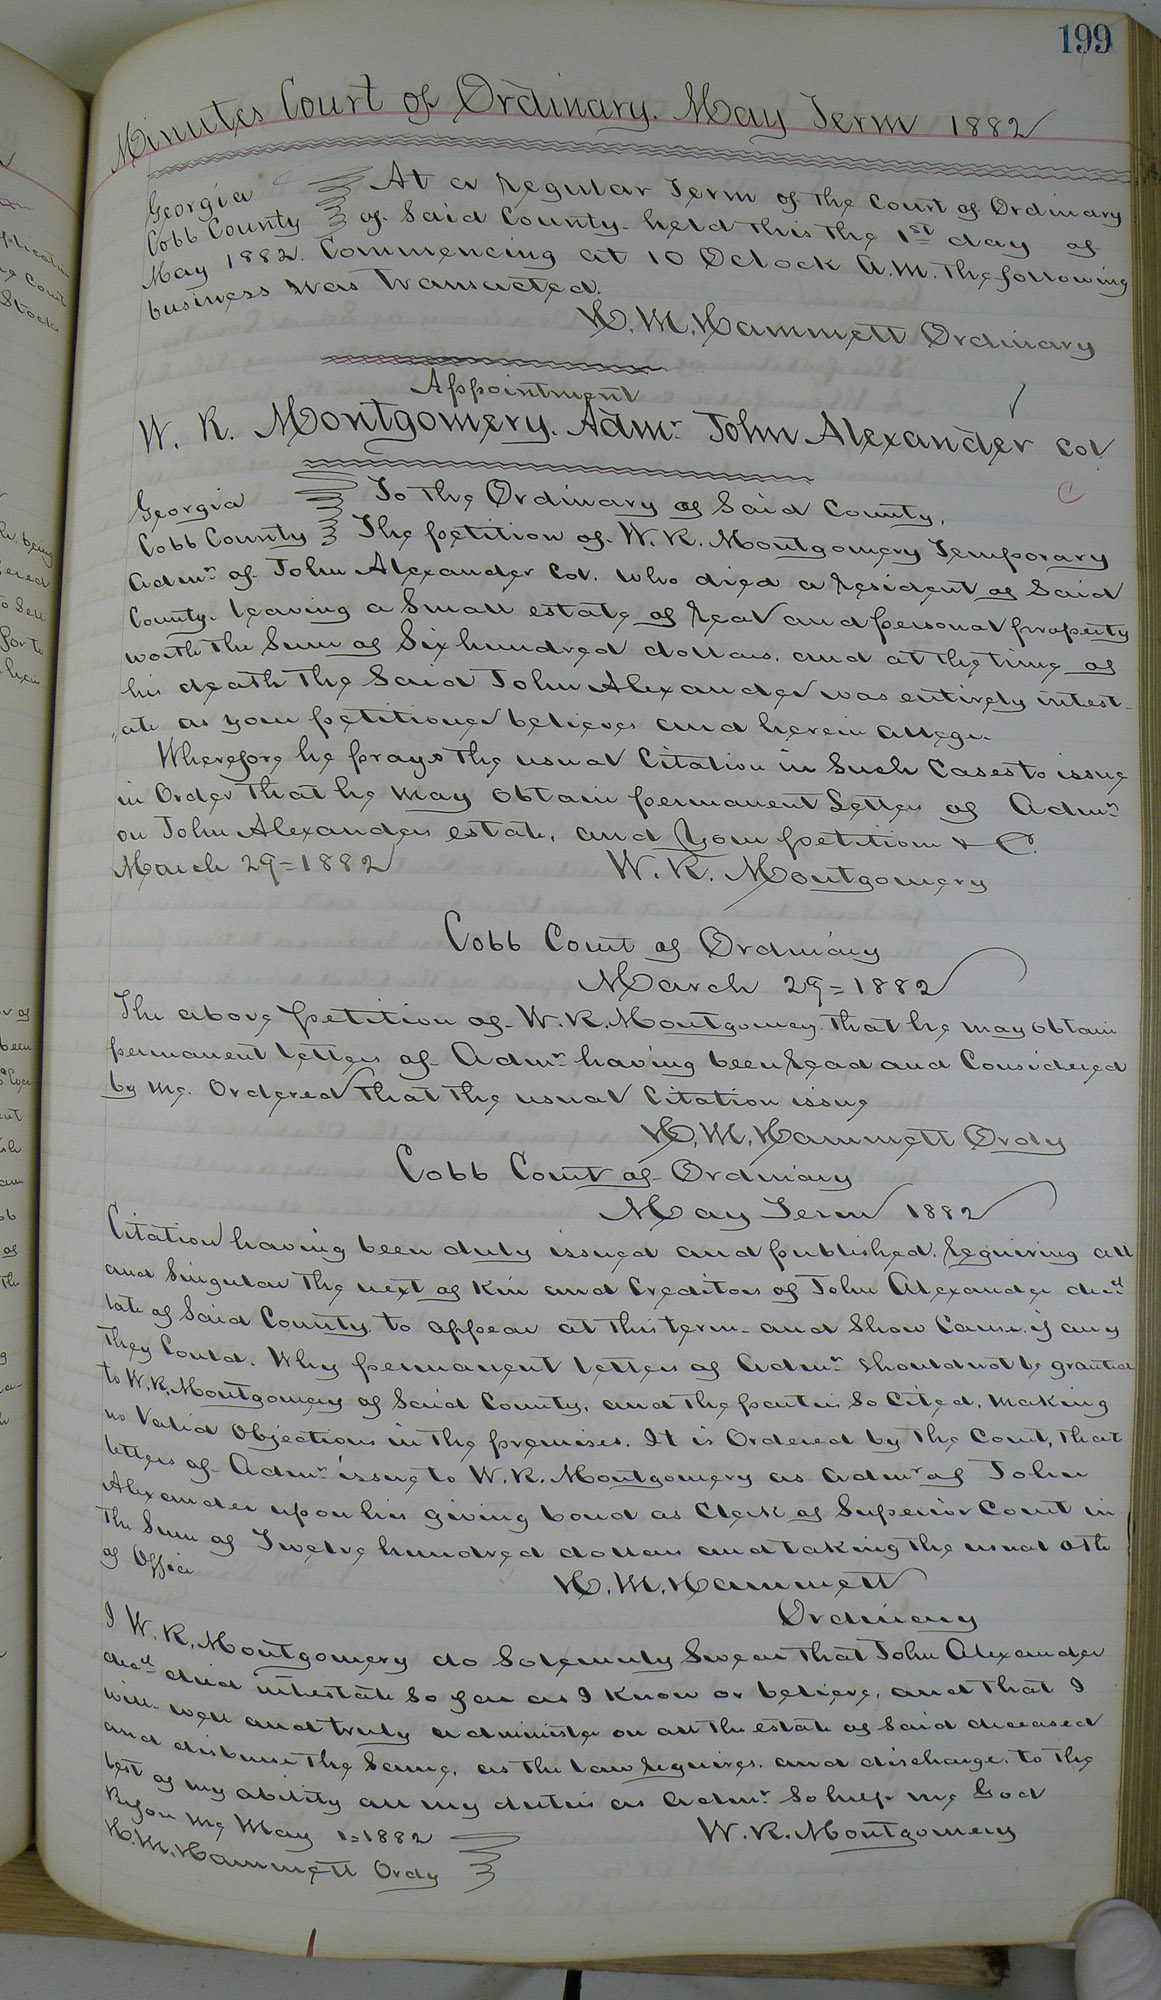 199
Minutes Court of Ordinary. May Term 1882
Georgia At a regular Term of the Court of Ordinary
Cobb County of Said County held this the 1st day of
May 1882. Commencing at 10 Oclock A.M. the following
business was transacted.
H. M. Hammett Ordinary
Appointment
W. R. Montgomery. Admr. John Alexander Col
Georgia To the Ordinary of Said County,
Cobb County The petition of W. R. Montgomery Temporary
Admr. of John Alexander Col. who died a resident of Said
County, leaving a Small estate of real and personal property
worth the Sum of Six hundred dollars, and at the time of
his death the Said John Alexander was entirely intest-
ate as your petitioner believes and herein allege.
Wherefore he prays the usual Citation in Such Cases to issue
in Order that he may obtain permanent Letters of Admr.
on John Alexanders estate, and your petition & C.
March 29=1882 W. R. Montgomery
Cobb Court of Ordinary
March 29=1882
The above petition of W. R. Montgomery that he may obtain
permanent letters of Admr. having been read and Considered
by me. Ordered that the usual Citation issue
H. M. Hammett Ordy
Cobb Court of Ordinary
May Term 1882
Citation having been duly issued and published, requiring all
and Singular the next of Kin and Creditors of John Alexander decd
late of Said County to appear at this term and Show Cause, if any
they Could, Why permanent letters of Admr. should not be granted
to W. R. Montgomery of Said County, and the parties So Cited, making
no Valid Objections in the premises. It is Ordered by the Court, that
letters of Admr. issue to W. R. Montgomery as Admr of John
Alexander upon his giving bond as Clerk of Superior Court in
the Sum of Twelve hundred dollars and taking the usual oth
of Office
H. M. Hammett
Ordinary
I W. R. Montgomery do Solemnly Swear that John Alexander
decd died intestate So far as I know or believe, and that I
will well and truly administer on all the estate of Said deceased
and disburse the Same, as the law requires, and discharge, to the
best of my ability all my duties as Admr. So help me God
Before me May 1=1882 W. R. Montgomery
H. M. Hammett Ordy